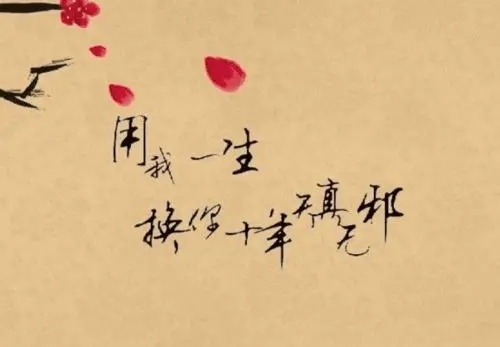 用我一生
换你十年天真无邪